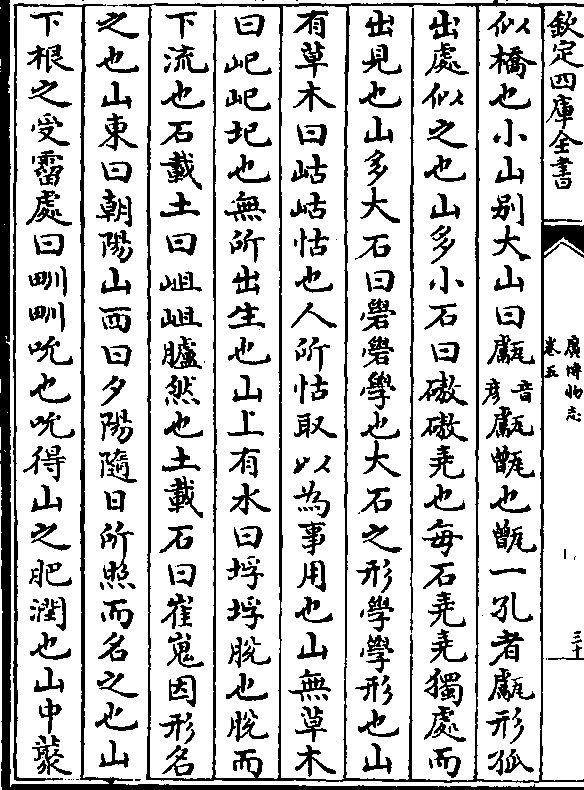 欽定四庫全書
廣博物志
卷五
三十
似橋也小山别大山曰甗音彦甗甑也甑一孔者甗形孤
出處似之也山多小石曰磝磝堯也每石堯堯獨處而
出見也山多大石曰礐礐學也大石之形學學形也山
有草木曰岵岵怙也人所怙取以為事用也山無草木
曰屺屺圯也無所出生也山上有水曰埒埒脱也脱而
下流也石載土曰岨岨臚然也土載石曰崔嵬因形名
之也山東曰朝陽山西曰夕陽隨日所照而名之也山
下根之受霤處曰甽甽吮也吮得山之肥潤也山中藂